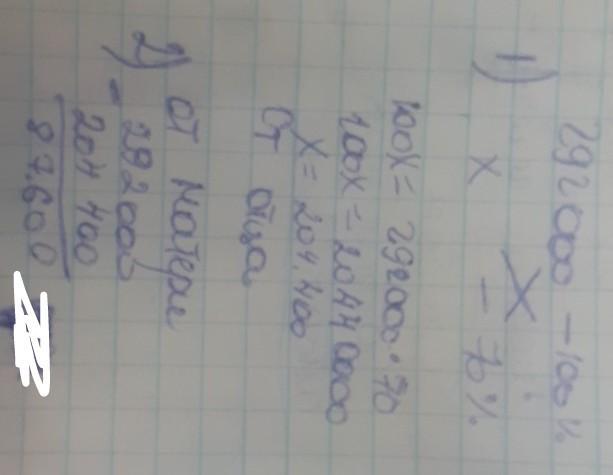 1) 292000 - 100%
x - 70%
100x = 292000 · 70
100x = 20440000
x = 204.400
От отца
2) от матери
- 292000
204 400
87.600